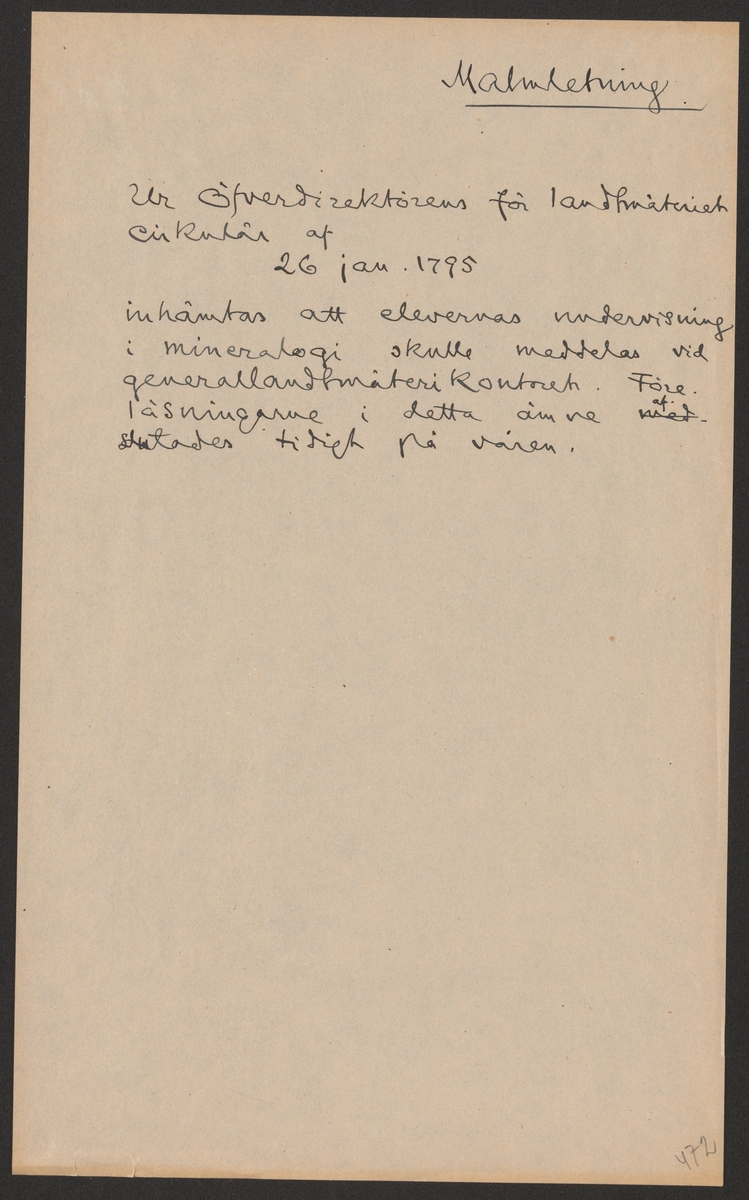 Malmletning.
Ur Öfverdirektörens för landtmäteriet
cirkulär af
26 jan. 1795
inhämtas att elevernas undervisning
i mineralogi skulle meddelas vid
generallandtmäterikontoret. Före-
läsningarne i detta ämne med- af-
slutades tidigt på våren.
472